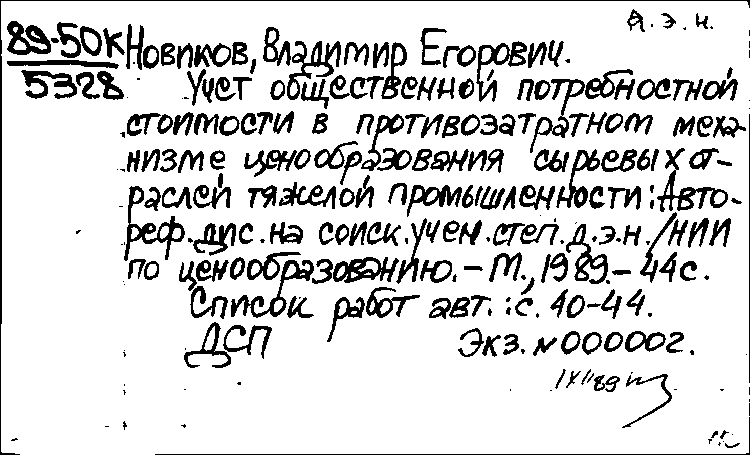 д.э.н.
89-50К
5328
Новиков, Владимир Егорович.
Учет общественной потребностной
стоимости в противозатратном меха-
низме ценообразования сырьевых от-
раслей тяжелой промышленности: Авто-
реф. дис. на соиск. учен. степ. д.э.н. /НИИ
по ценообразованию. – М., 1989. – 44 с.
Список работ авт.: с. 40-44.
ДСП Экз. № 000002.